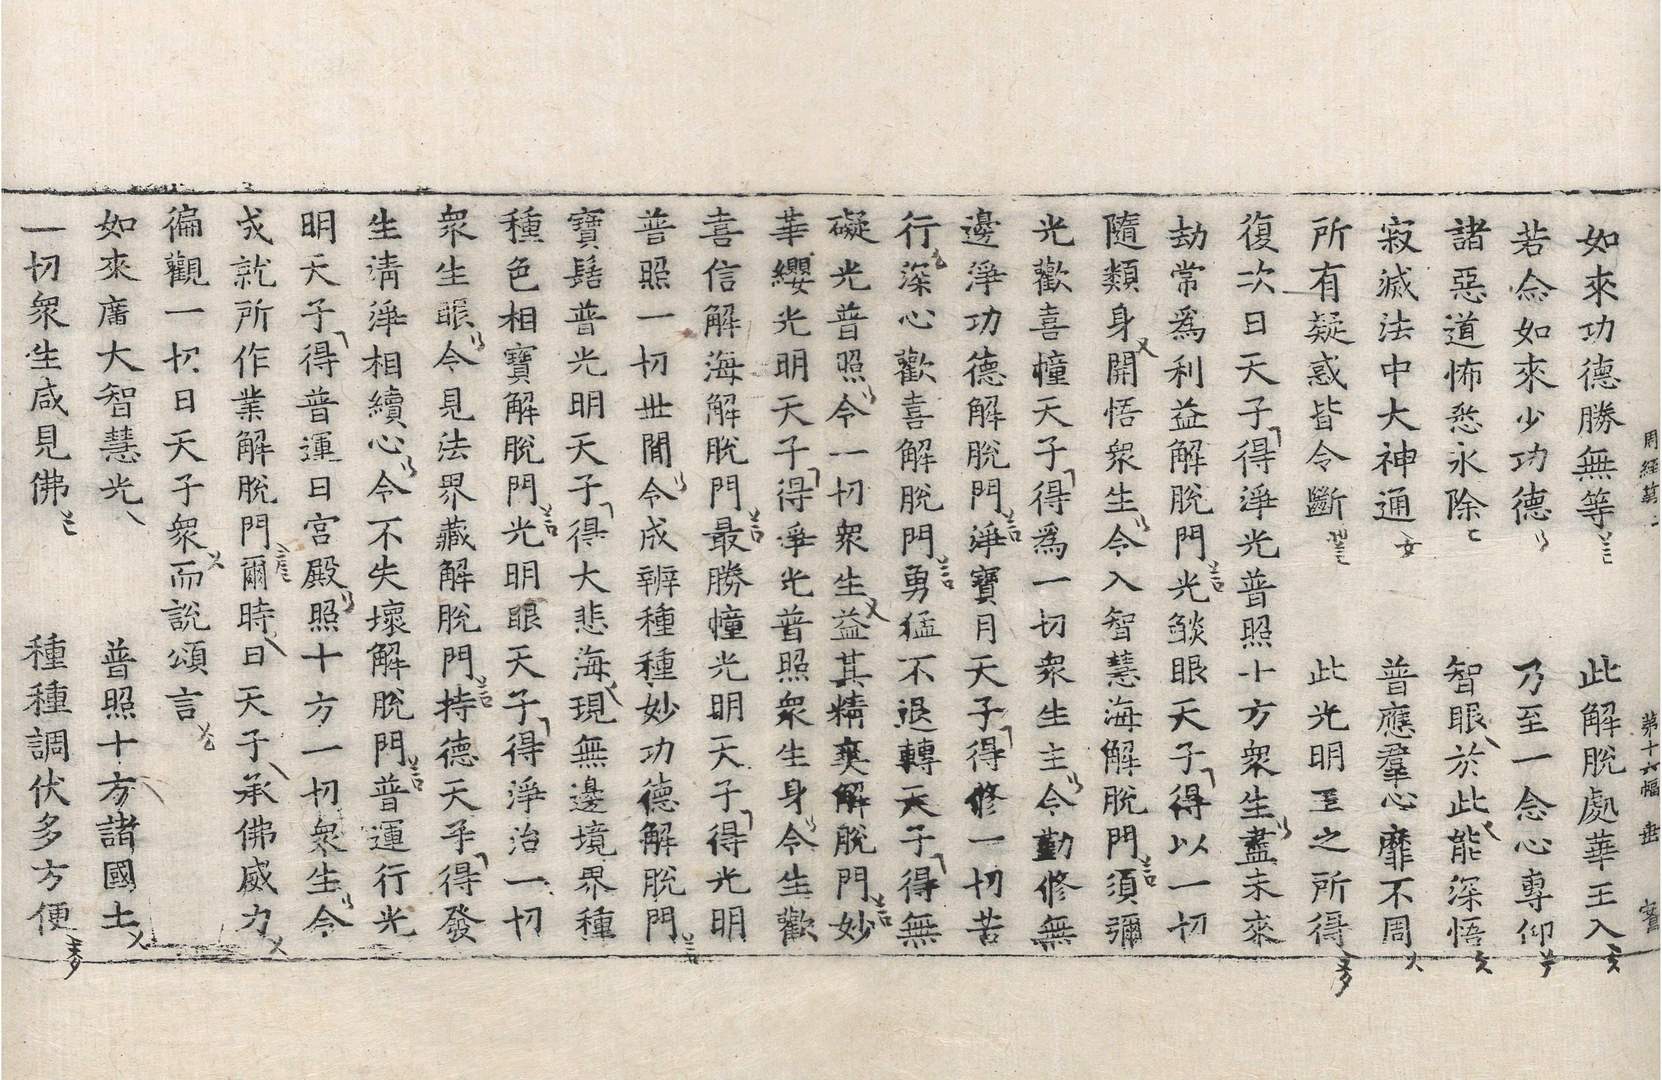 周經第二 第十六幅 甚 
如來功德勝無等 此解脫處華王入
若念如來少功德 乃至一念心專仰
諸惡道怖悉永除 智眼於此能深悟
寂滅法中大神通 普應羣心靡不周
所有疑惑皆令斷 此光明王之所得
復次日天子得淨光普照十方衆生盡未來
劫常爲利益解脫門光燄眼天子得以一切
隨類身開悟衆生令入智慧海解脫門須彌
光歡喜幢天子得爲一切衆生主令勤修無
邊淨功德解脫門淨寶月天子得修一切苦
行深心歡喜解脫門勇猛不退轉天子得無
礙光普照令一切衆生益其精爽解脫門妙
華纓光明天子得淨光普照衆生身令生歡
喜信解海解脫門最勝幢光明天子得光明
普照一切世間令成辨種種妙功德解脫門
寶髻普光明天子得大悲海現無邊境界種
種色相寶解脫門光明眼天子得淨治一切
衆生眼令見法界藏解脫門持德天子得發
生淸淨相續心令不失壞解脫門普運行光
明天子得普運日宮殿照十方一切衆生令
成就所作業解脫門爾時日天子承佛威力
徧觀一切日天子衆而說頌言
如來廣大智慧光 普照十方諸國土
一切衆生咸見佛 種種調伏多方便